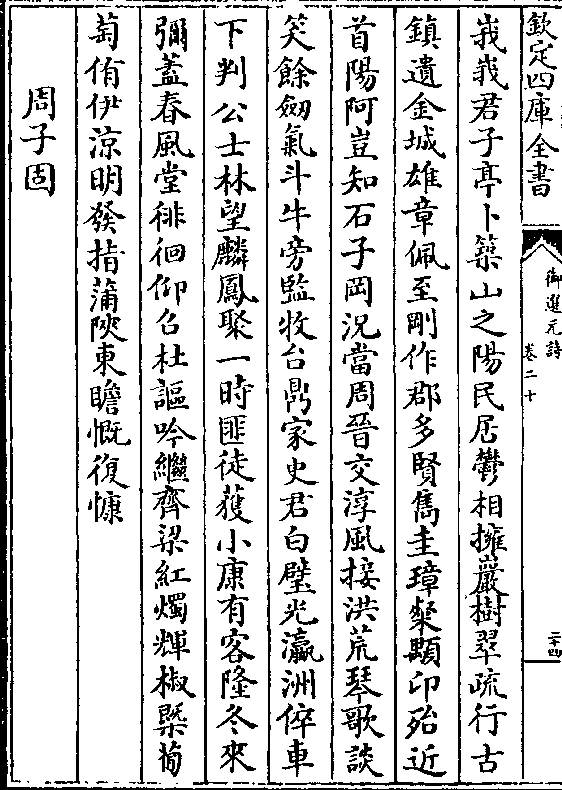 欽定四庫全書
御選元詩
卷二十
二十四
峩峩君子亭卜築山之陽民居鬱相擁巖樹翠疏行古
鎮遺金城雄章佩至剛作郡多賢雋圭璋粲顒卬殆近
首陽阿豈知石子岡況當周晉交淳風接洪荒琴歌談
笑餘劔氣斗牛旁監牧台鼎家史君白璧光瀛洲倅車
下判公士林望麟鳳聚一時匪徒蕿小康有客隆冬來
彌蓋春風堂徘徊仰召杜謳吟繼齊梁紅燭輝椒槩蔔
萄侑伊涼明發指蒲陜東瞻慨復慷
周子固